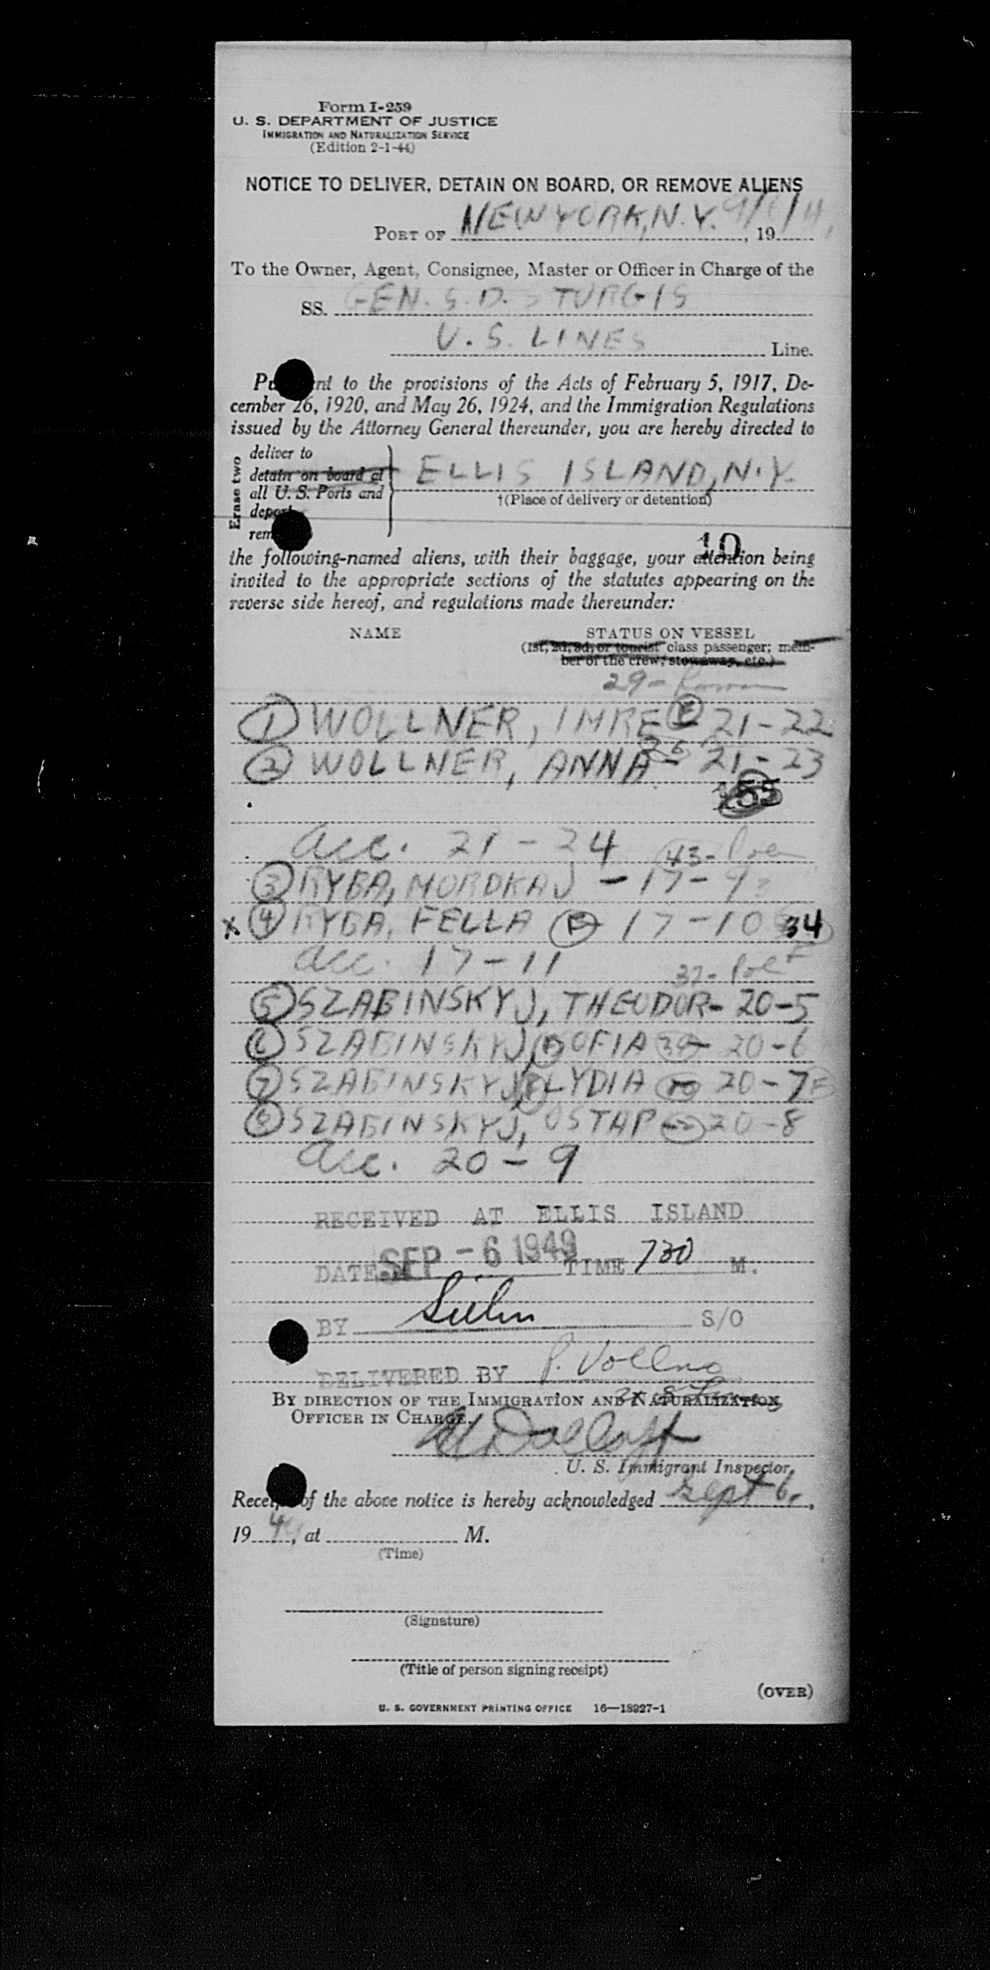 Form I-259
U. S. DEPARTMENT OF JUSTICE
IMMIGRATION AND NATURALIZATION SERVICE
(Edition 2-1-44)
NOTICE TO DELIVER, DETAIN ON BOARD, OR REMOVE ALIENS
PORT OF NEW YORK, N.Y. , 19
To the Owner, Agent, Consignee, Master or Officer in Charge of the
SS. GEN. S. D. STURGIS
U. S. LINES Line.
Pursuant to the provisions of the Acts of February 5, 1917, De-
cember 26, 1920, and May 26, 1924, and the Immigration Regulations
issued by the Attorney General thereunder, you are hereby directed to
Erase two
deliver to
detain on board at
all U. S. Ports and
deport
remove
ELLIS ISLAND, N.Y.
†(Place of delivery or detention)
10
the following-named aliens, with their baggage, your attention being
invited to the appropriate sections of the statutes appearing on the
reverse side hereof, and regulations made thereunder:
NAME STATUS ON VESSEL
(1st, 2d, 3d, or tourist class passenger; mem-
ber of the crew; stowaway, etc.)
29-
① WOLLNER, IMRE 21-22
② WOLLNER, ANNA - 21-23
155
acc. 21-24 43-
③ RYBA, MORDKAJ - 17-9
x ④ RYBA, FELLA F 17-10 34
acc. 17-11
⑤ SZABINSKYJ, THEODOR - 20-5
⑥ SZABINSKYJ, ZOFIA 20-6
⑦ SZABINSKYJ, LYDIA 20-7
⑧ SZABINSKYJ, OSTAP 20-8
acc. 20-9
RECEIVED AT ELLIS ISLAND
DATE SEP -6 1949 TIME 730 M.
BY S/O
DELIVERED BY P.
BY DIRECTION OF THE IMMIGRATION AND NATURALIZATION
OFFICER IN CHARGE.
U. S. Immigrant Inspector.
Receipt of the above notice is hereby acknowledged Sept 6,
1949, at M.
(Time)
(Signature)
(Title of person signing receipt)
(OVER)
U. S. GOVERNMENT PRINTING OFFICE 16—18927-1